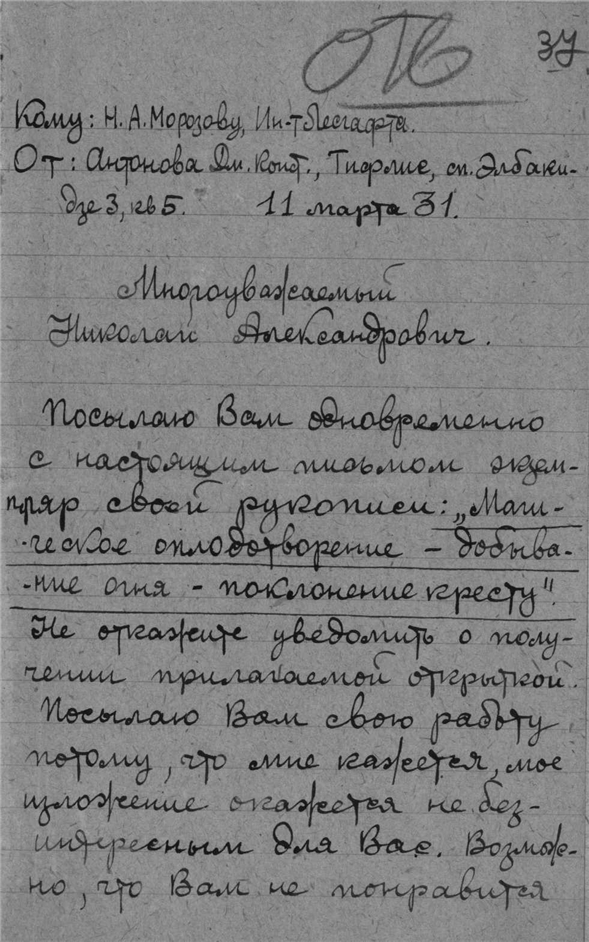 отв
37
Кому: Н. А. Морозову, Ин-т Лесгафта.
От: Антонова Дм. Конст., Тифлис, сп. Элбаки-
дзе 3, кв 5. 11 марта 31.
Многоуважаемый
Николай Александрович.
Посылаю Вам одновременно
с настоящим письмом экзем-
пляр своей рукописи: „Маги-
-ческое оплодотворение – добыва-
-ние огня – поклонение кресту".
Не откажите уведомить о полу-
чении прилагаемой открыткой.
Посылаю Вам свою работу
потому, что мне кажется, мое
изложение окажется не без-
интересным для Вас. Возмож-
но, что Вам не понравится